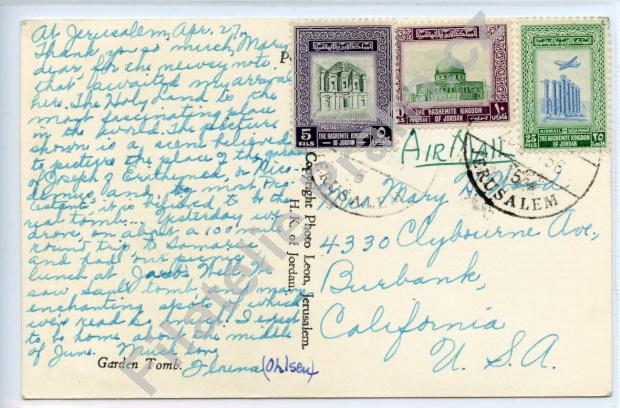 At Jerusalem, Apr. 27,
Thank you so much, Mary
dear, for the newsy note
that awaited my arrival
here. The Holy Land is the
most fascinating place
in the world. The picture
shown is a scene believed
to picture the place of the
of Joseph of
and by most Pro-
it is believed to be the
real tomb. Yesterday we
drove on about a 100 mi
round trip to Samaria
and had our picnic
lunch at Jacob's Well. We
saw tomb and many
enchanting spots of which
we've read so much. I expect
to be home about the middle
of June. Much love
Florena (Ohlsen)
Garden Tomb.
Copyright Photo Leon, Jerusalem.
H. K. of Jordan.
5
FILS
THE HASHEMITE KINGDOM
OF JORDAN
POSTAGE
THE HASHEMITE KINGDOM
OF JORDAN
١٠
AIRMAIL
25
FILS
THE HASHEMITE KINGDOM
OF JORDAN
٢٥
JERUSALEM
56
JERUSALEM
AIR MAIL
Mary
4330 Clybourne Ave,
Burbank,
California
U. S. A.